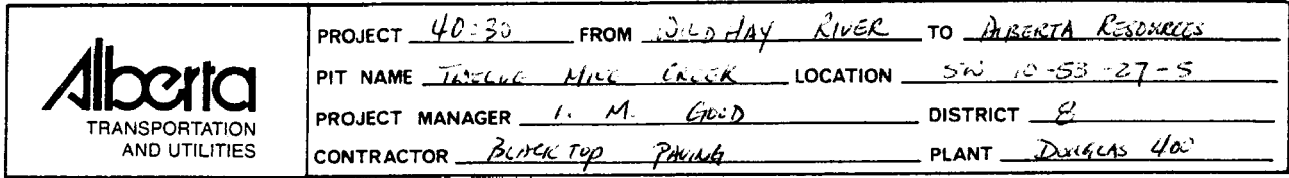 Alberta
TRANSPORTATION
AND UTILITIES
PROJECT 40:30 FROM WILD HAY RIVER TO ALBERTA RESOURCES
PIT NAME TWELVE MILE CREEK LOCATION SW 10-53-27-5
PROJECT MANAGER I. M. GOOD DISTRICT 8
CONTRACTOR BLACK TOP PAVING PLANT DOUGLAS 400